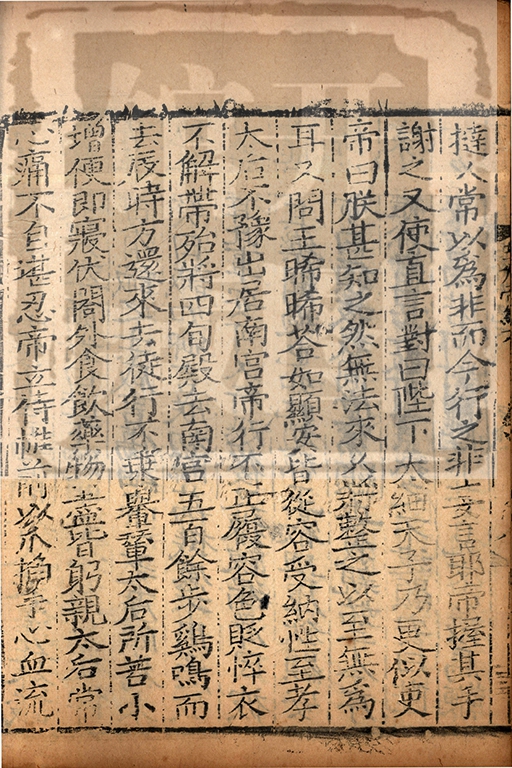 撻人常以為非而今行之非妄言耶帝握其手
謝之又使直言對曰陛下太細天子乃更似吏
帝曰朕甚知之然無法來久將整之以至無為
耳又問王晞晞荅如顯安皆從容受納性至孝
太后不豫出居南宮帝行不正履容色貶悴衣
不解帶殆將四旬殿去南宮五百餘步鷄鳴而
去辰時方還來去徒行不乗轝輦太后所苦小
增便即寢伏閤外食飲藥物盡皆躬親太后常
心痛不自堪忍帝立侍帷前以爪掐手心血流